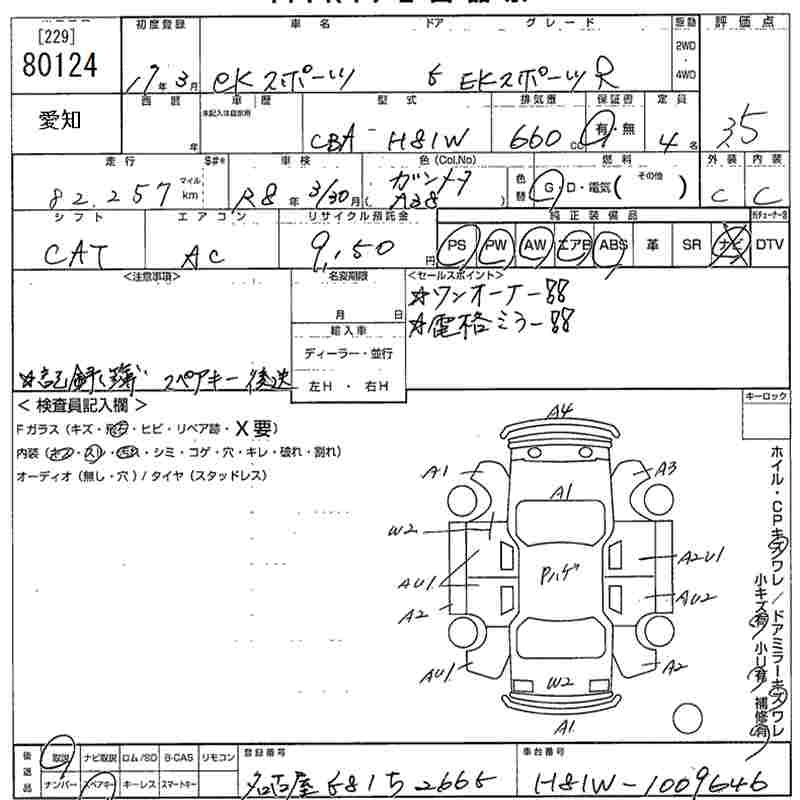 [229]
80124
初度登録 車名 ドア グレード 駆動 評価点
17年3月 eKスポーツ 5 EKスポーツR 2WD・4WD
愛知
西暦 年 車歴 未記入は自家用 型式 排気量 保証書 定員
CBA-H81W 660cc 有・無 4名 3.5
走行 S#* 車検 色(Col.No) 燃料 外装 内装
82,257 マイル km R8年3/30月 ガンメタ ( A38 ) 色替 G・D・電気( その他 ) C C
シフト エアコン リサイクル預託金 純正装備品
CAT AC 9,150円 PS PW AW エアB ABS 革 SR ナビ DTV
<注意事項> 名変期限 <セールスポイント>
月 日
☆ワンオーナー!!
☆電格ミラー!!
輸入車
ディーラー・並行
左H・右H
☆記録簿 スペアキー後送
<検査員記入欄> キーロック
Fガラス(キズ・飛石・ヒビ・リペア跡・X要)
内装(キズ・スレ・汚れ・シミ・コゲ・穴・キレ・破れ・割れ)
オーディオ(無し・穴)/タイヤ(スタッドレス)
A4
A1 A3
A1
W2
Pハゲ
A2U1
AU1
AU2
A2
AU1 A2
W2
A1
ホイル・CPキズワレ/ドアミラーキズワレ
小キズ有 小U有 補修有
後送品 取説 ナビ取説 ロム/SD B-CAS リモコン
ナンバー スペアキー キーレス スマートキー
登録番号 車台番号
名古屋581ち2665 H81W-1009646